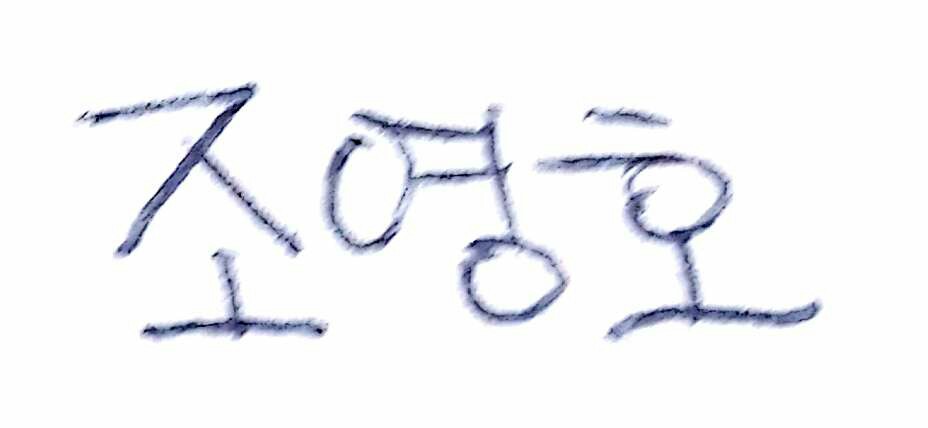 조영호